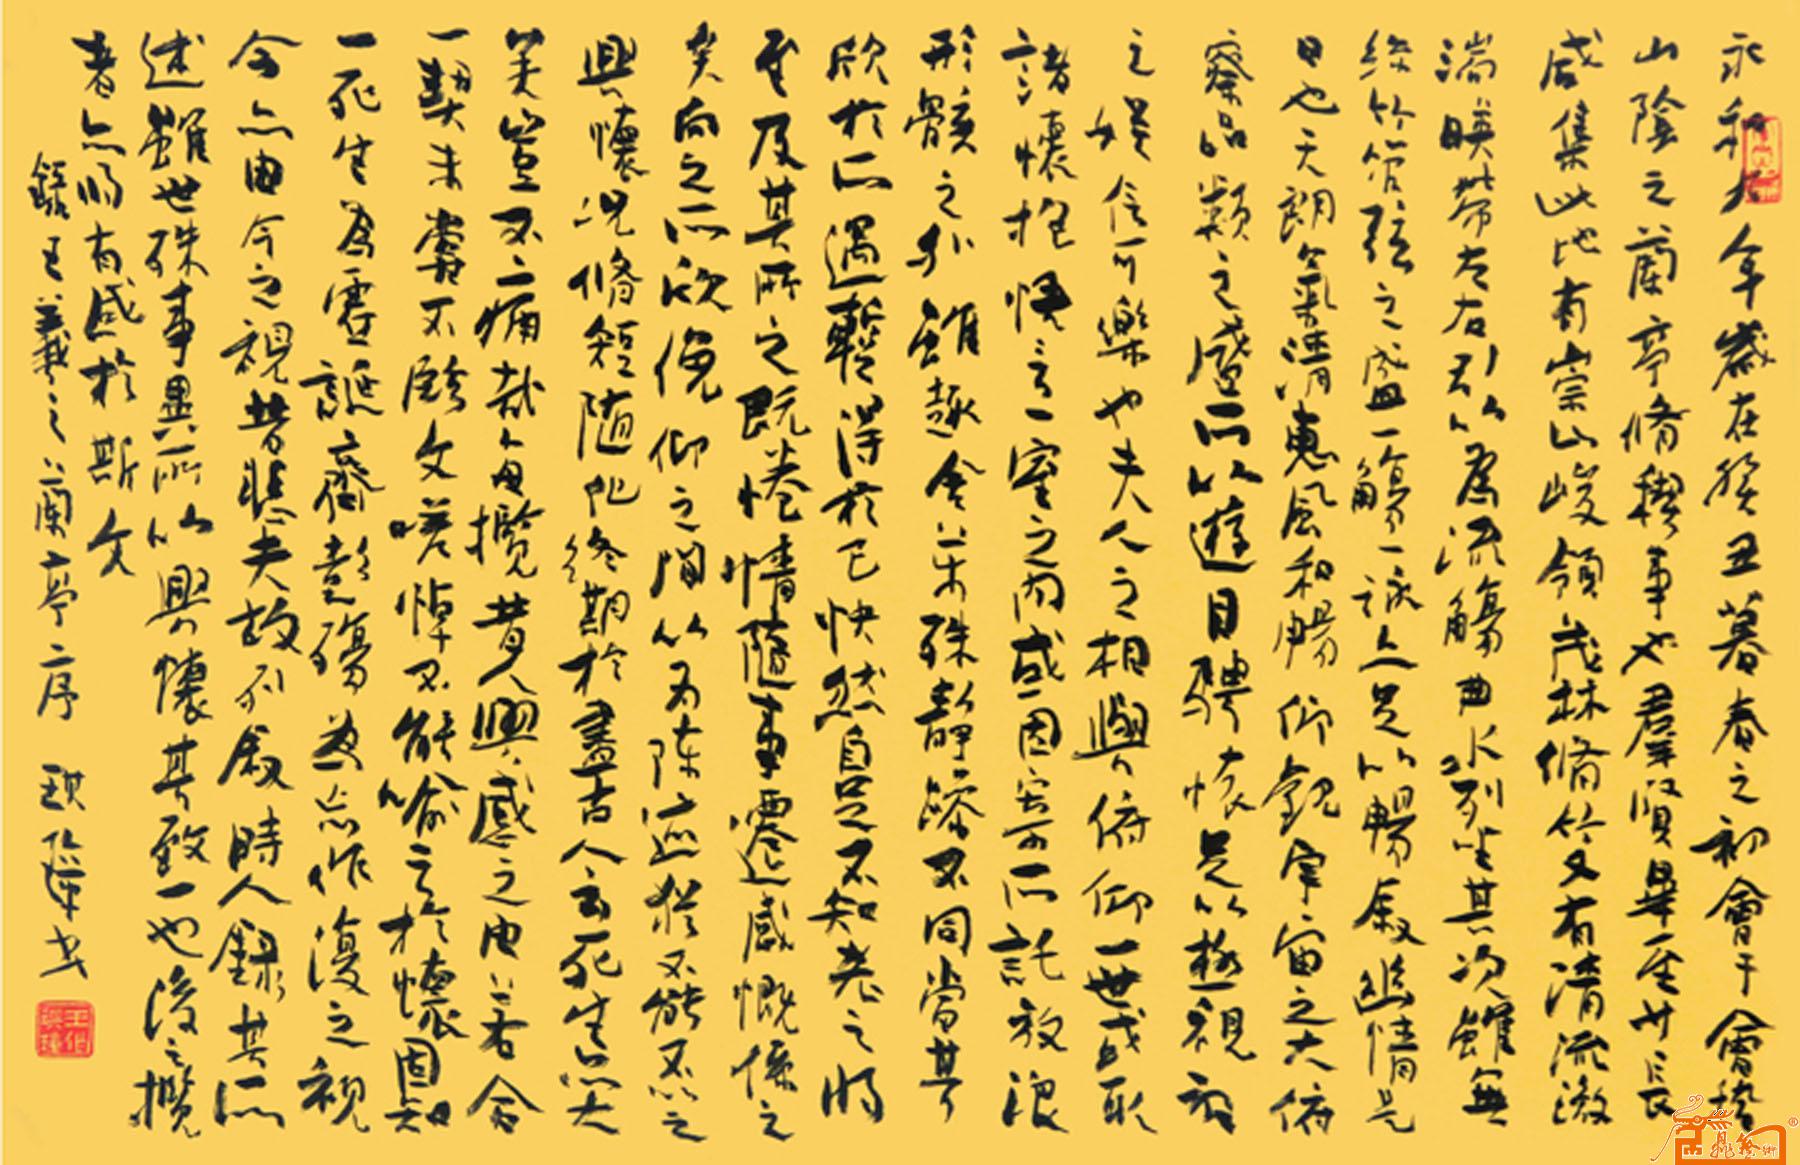 永和九年歲在癸丑暮春之初會于會稽
山陰之蘭亭脩禊事也羣賢畢至少長
咸集此地有崇山峻領茂林脩竹又有清流激
湍暎帶左右引以為流觴曲水列坐其次雖無
絲竹管弦之盛一觴一詠亦足以暢敘幽情是
日也天朗氣清惠風和暢仰觀宇宙之大俯
察品類之盛所以遊目騁懷足以極視聽
之娛信可樂也夫人之相與俯仰一世或取
諸懷抱悟言一室之內或因寄所託放浪
形骸之外雖趣舍万殊靜躁不同當其
欣於所遇暫得於己快然自足不知老之將
至及其所之既惓情隨事遷感慨係之
矣向之所欣俛仰之間以為陳迹猶不能不以之
興懷況脩短隨化終期於盡古人云死生亦大
矣豈不痛哉每攬昔人興感之由若合
一契未嘗不臨文嗟悼不能喻之於懷固知
一死生為虛誕齊彭殤為妄作後之視
今亦由今之視昔悲夫故列敘時人錄其所
述雖世殊事異所以興懷其致一也後之攬
者亦將有感於斯文
錄王羲之蘭亭序